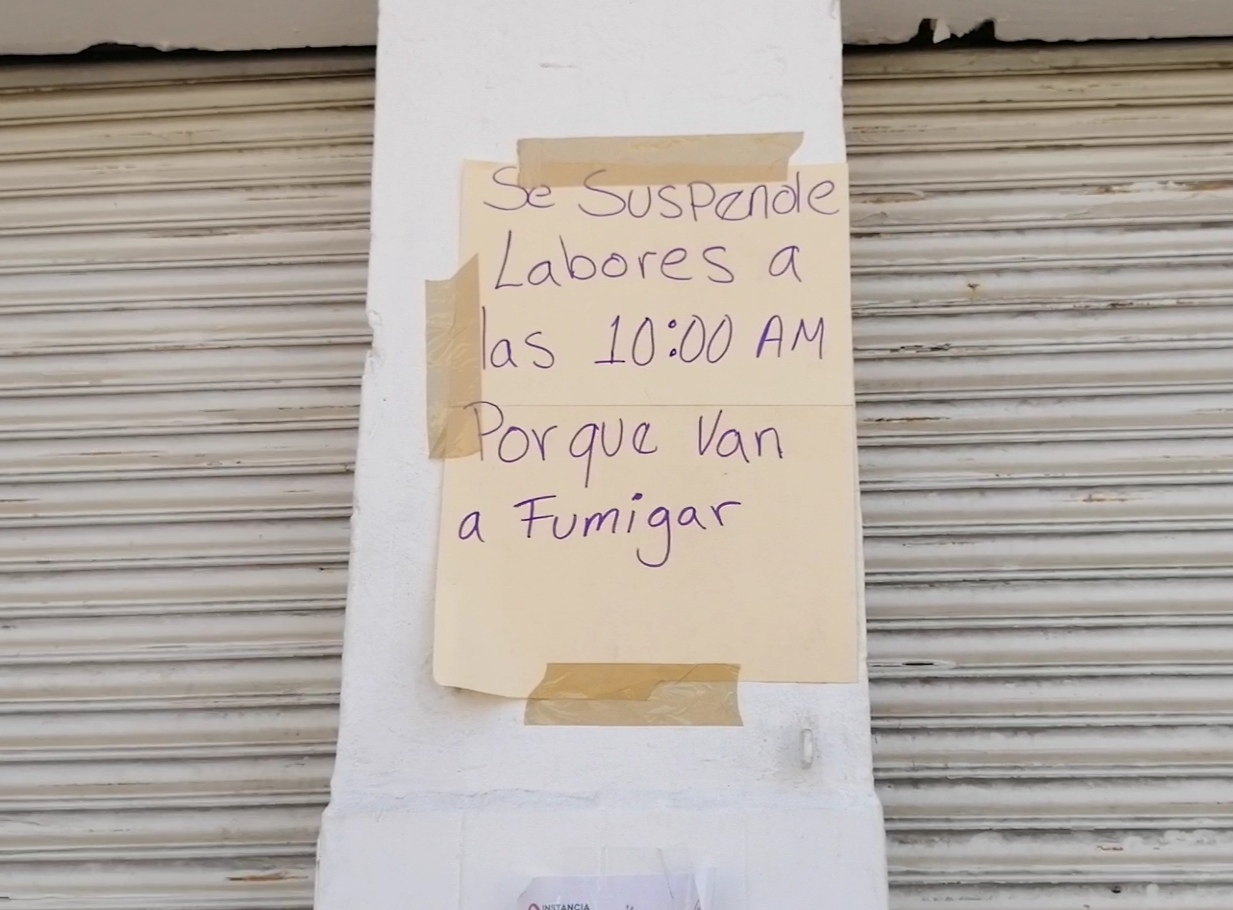 Se Suspende
Labores a
las 10:00 AM
Porque Van
a Fumigar
INSTANCIA